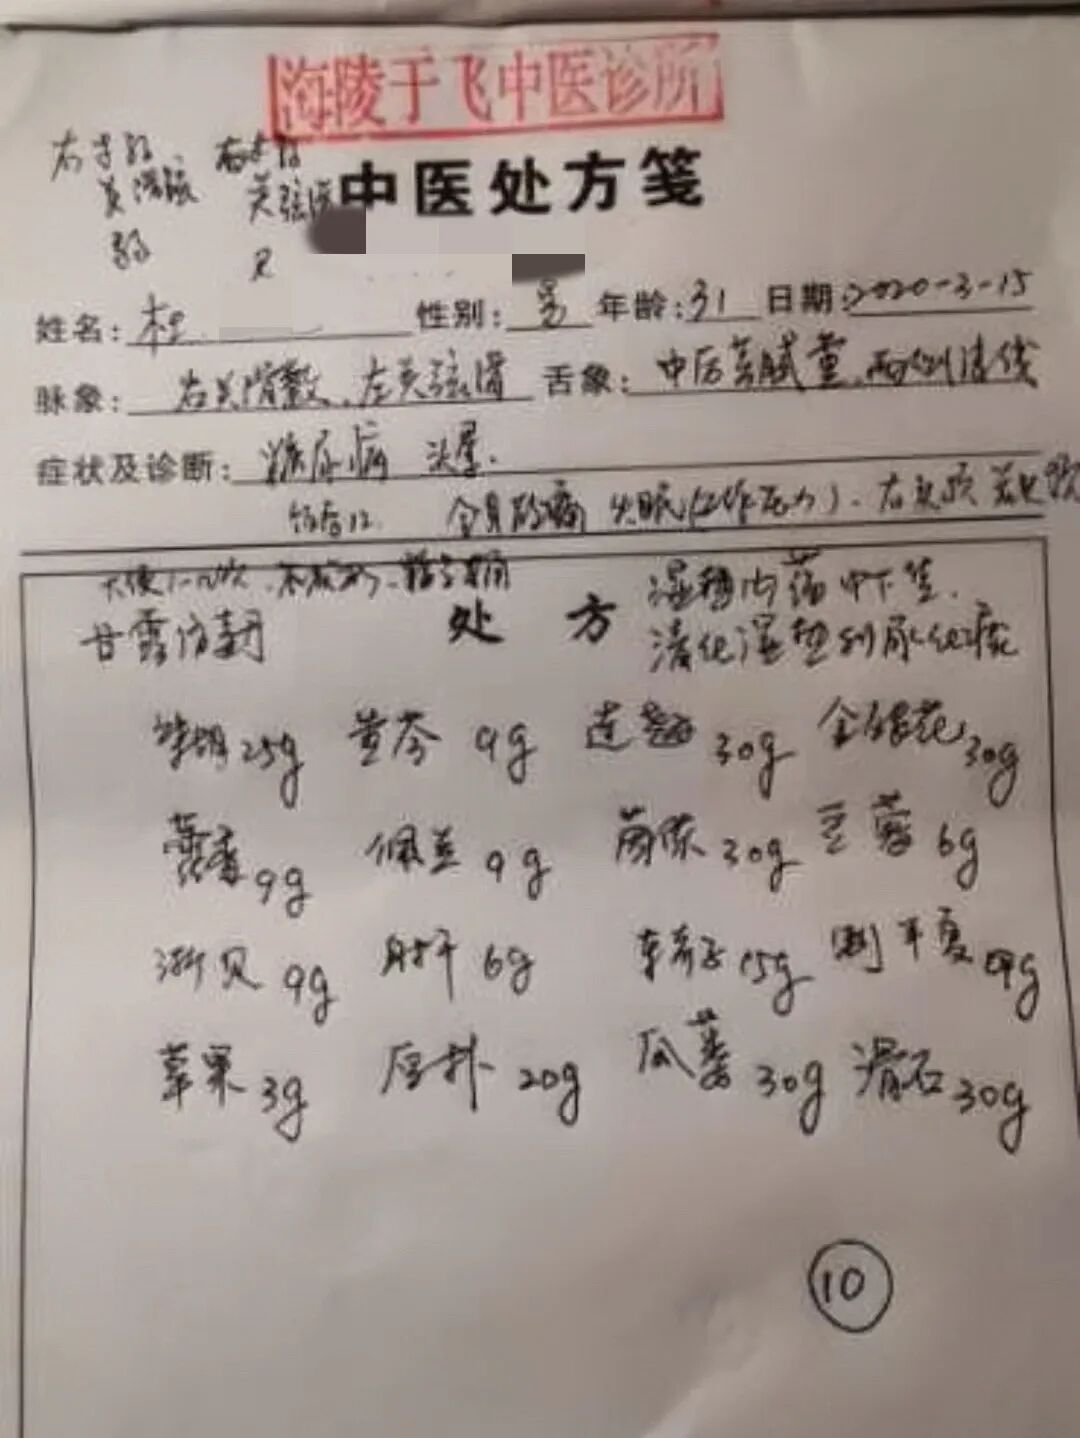 海陵于飞中医诊所
中医处方笺
姓名: 杜 性别: 男 年龄: 31 日期: 2020-3-15
脉象: 右关滑数、左关弦滑 舌象: 中后黄腻
症状及诊断: 糖尿病 头晕.
全身酸痛 失眠(工作压力)、右
大便1-2次
甘露消毒丹 处方 湿 内蕴中下焦.
清化湿热利尿化痰
柴胡 25g 黄芩 9g 连翘 30g 金银花 30g
藿香 9g 佩兰 9g 茵陈 30g 豆蔻 6g
浙贝 9g 射干 6g 车前子 15g 制半夏 9g
草果 3g 厚朴 20g 瓜蒌 30g 滑石 30g
10